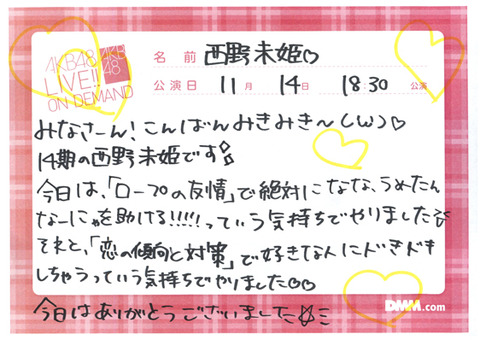 AKB48
LIVE!!
ON DEMAND
AKB
48
名前 西野未姫♡
公演日 11月 14日 18:30 公演
みなさーん!こんばんみきみき〜(ω)♡
14期の西野未姫です
今日は、「ロープの友情」で絶対になな、うめたん
なーにゃを助ける!!!!!っていう気持ちでやりました
それと、「恋の傾向と対策」で好きな人にドキドキ
しちゃうっていう気持ちでやりました♡♡
今日はありがとうございました
DMM.com